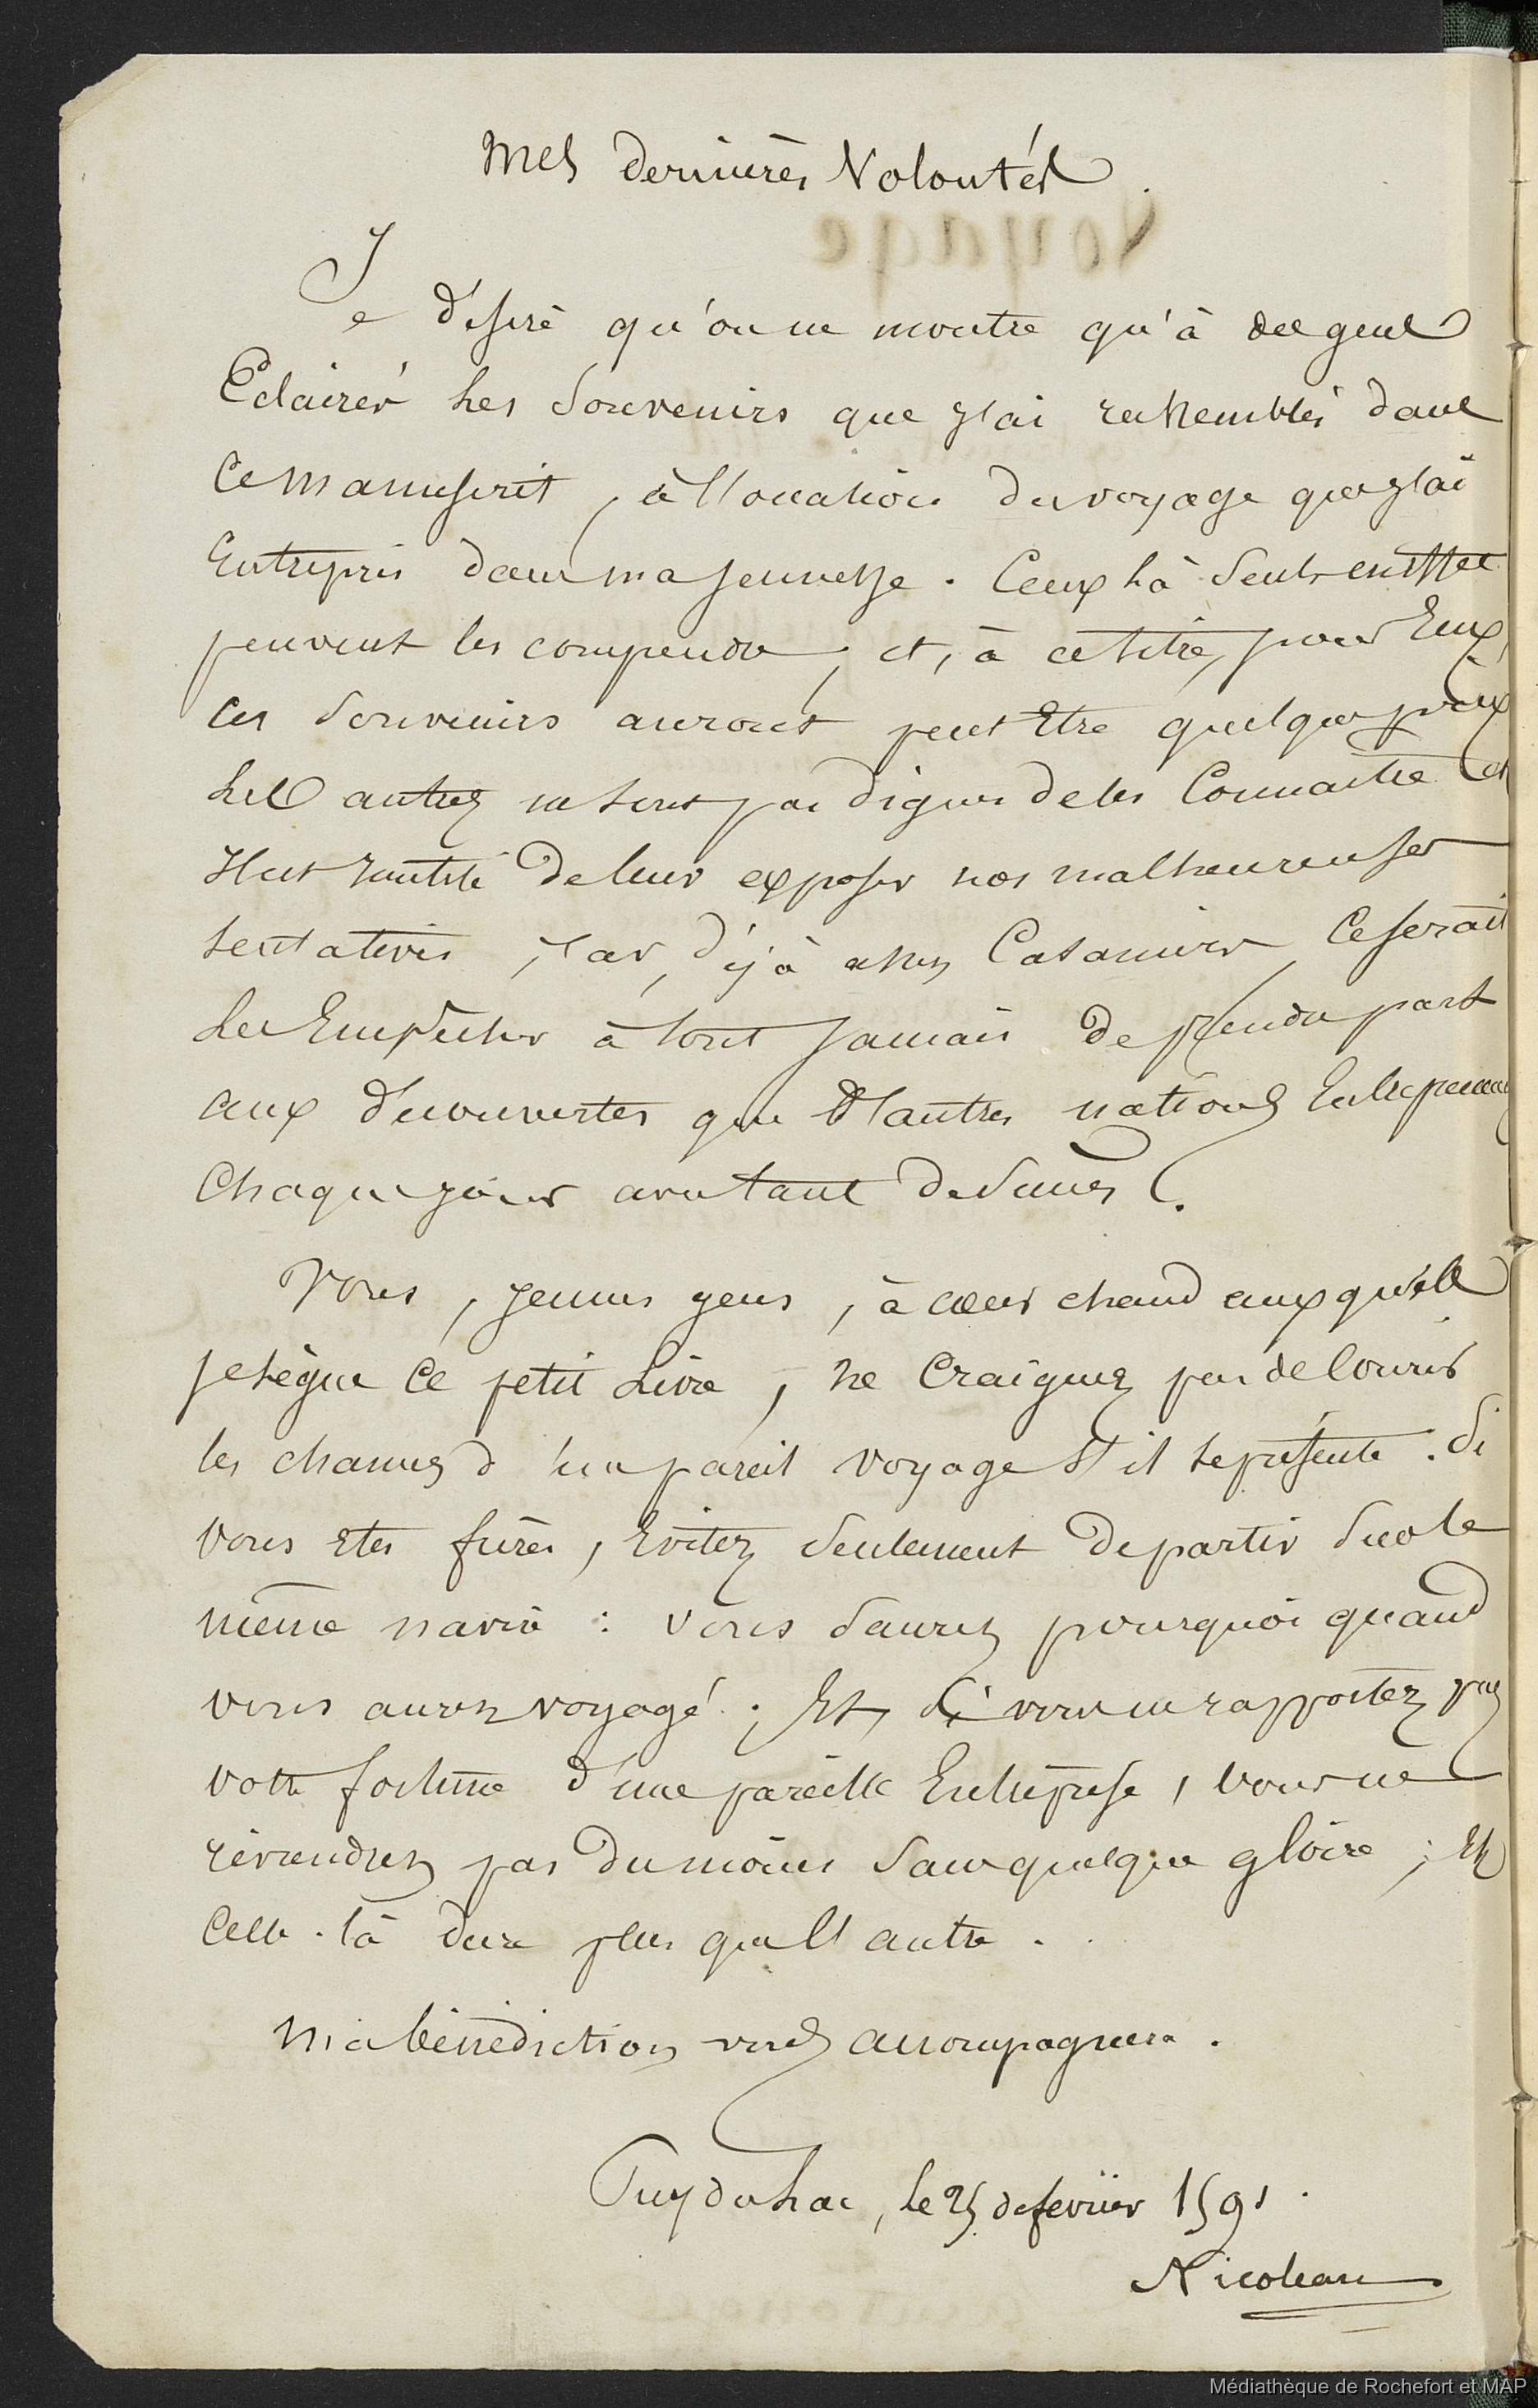 Mes dernières Volontés
Voyage
Je désire qu'on ne montre qu'à des gens
Eclairés les Souvenirs que j'ai rassemblés dans
Ce manuscrit, à l'occasion du voyage que j'ai
Entrepris dans ma jeunesse. Ceux là Seuls en effet
peuvent les comprendre, et, à ce titre, pour Eux,
ces Souvenirs auront peut Etre quelque prix
Les autres ne sont pas dignes de les Connaitre et
Il est inutile de leur exposer nos malheureuses
tentatives, car, déjà assez Casaniers, Ce serait
les Empêcher à tout Jamais de prendre part
aux découvertes que d'autres nations Entreprennent
Chaque jour avec tant de Succès.
Vous, jeunes gens, à cœur chaud auxquels
je lègue Ce petit Livre, ne Craignez pas de Courir
les chances d'un pareil voyage s'il se présente. Si
vous etes frères, Evitez Seulement de partir Sur le
même navire : vous Saurez pourquoi quand
vous aurez voyagé ; Et, Si vous ne rapportez pas
votre fortune d'une pareille Entreprise, vous ne
reviendrez pas du moins Sans quelque gloire ; Et
Celle-là dure plus que l'autre.
Ma bénédiction vous accompagnera.
Puyduhac, le 25 de fevrier 1591.
Nicoleau
Médiathèque de Rochefort et MAP